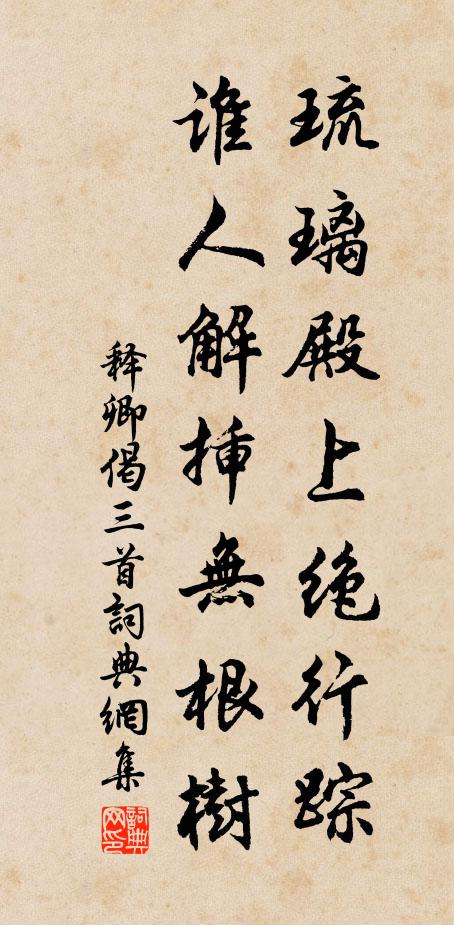 琉璃殿上绝行踪
谁人解插無根樹
释卿偈三首詞典網集
詞典网印